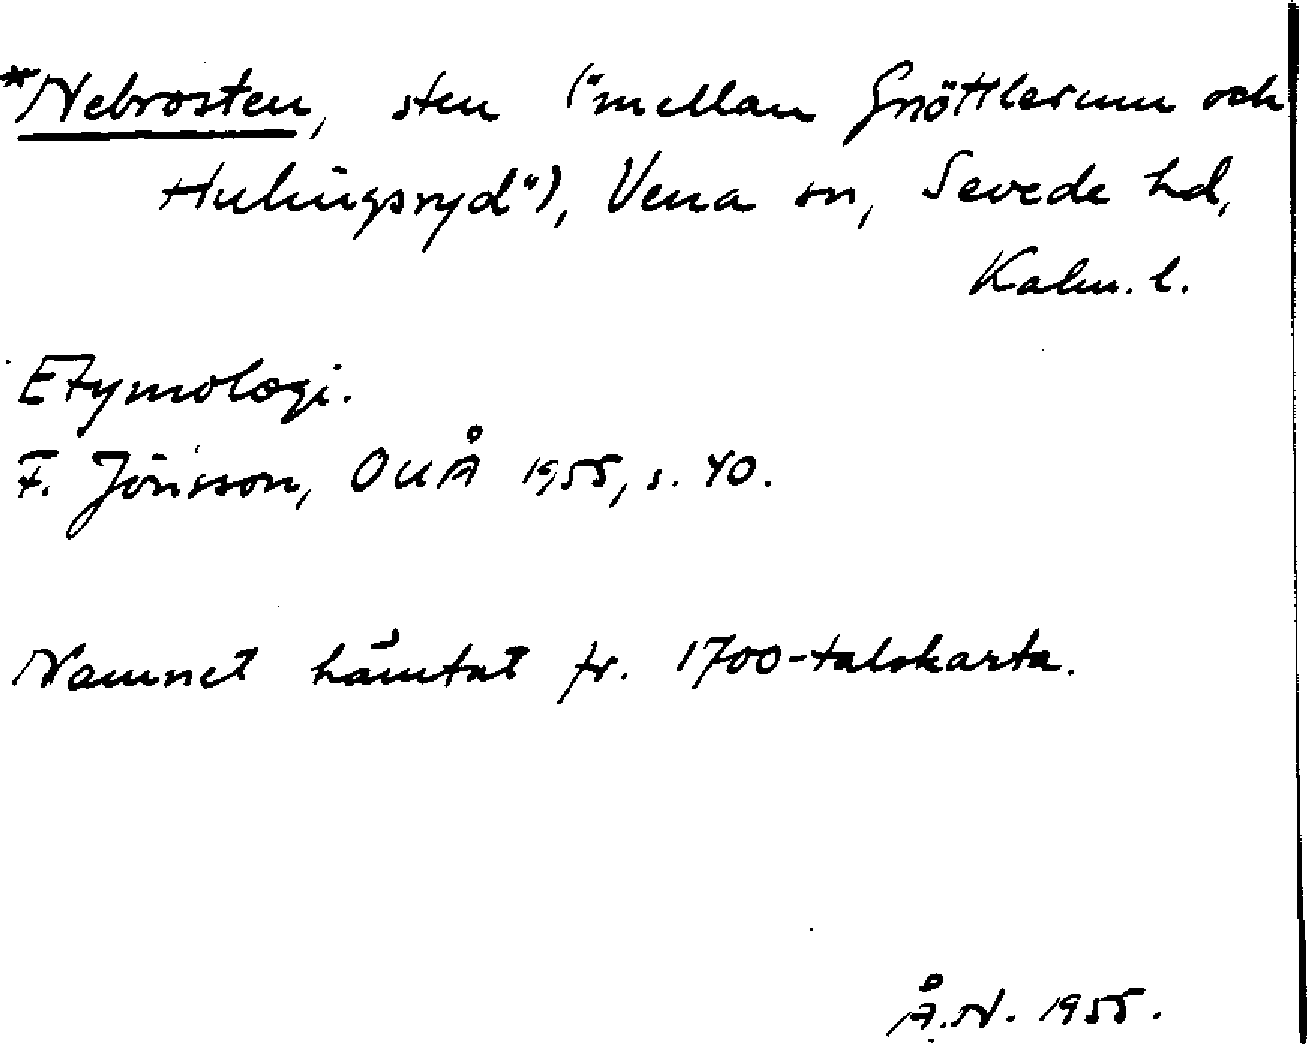 *Nebrosten, sten ("mellan Gnöttlerum och
Hulingsryd"), Vena sn, Sevede hd,
Kalm. l.
Etymologi.
F. Jönsson, OUÅ 1955, s. 40.
Namnet hämtat fr. 1700-talskarta.
Å.N. 1955.